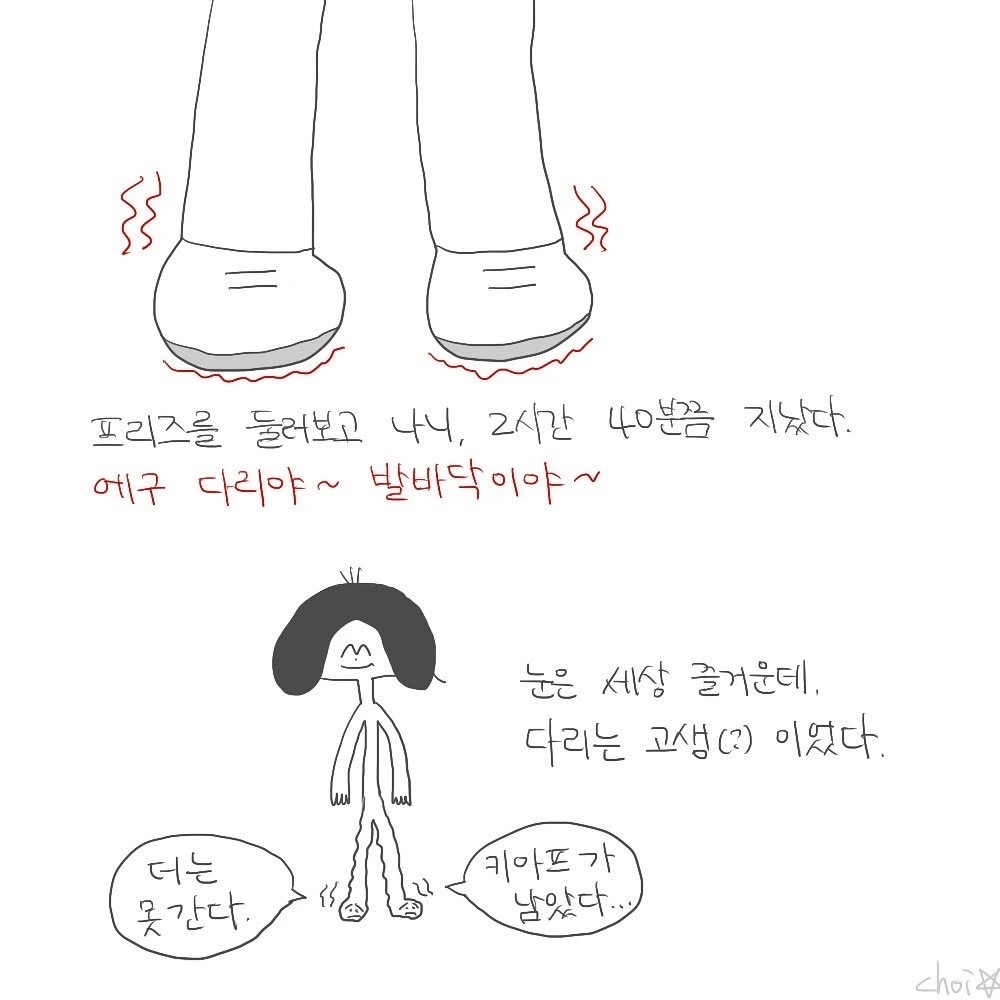 프리즈를 둘러보고 나니, 2시간 40분쯤 지났다.
에구 다리야~ 발바닥이야~
눈은 세상 즐거운데,
다리는 고생(?) 이었다.
더는
못 간다.
키아프가
남았다...
choi☆